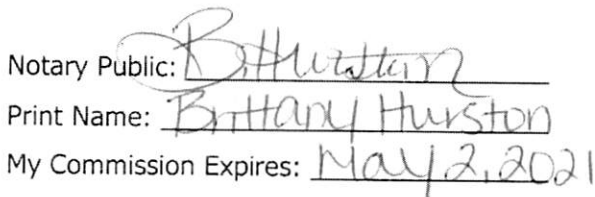 Notary Public: B. Hurston
Print Name: Brittany Hurston
My Commission Expires: May 2, 2021